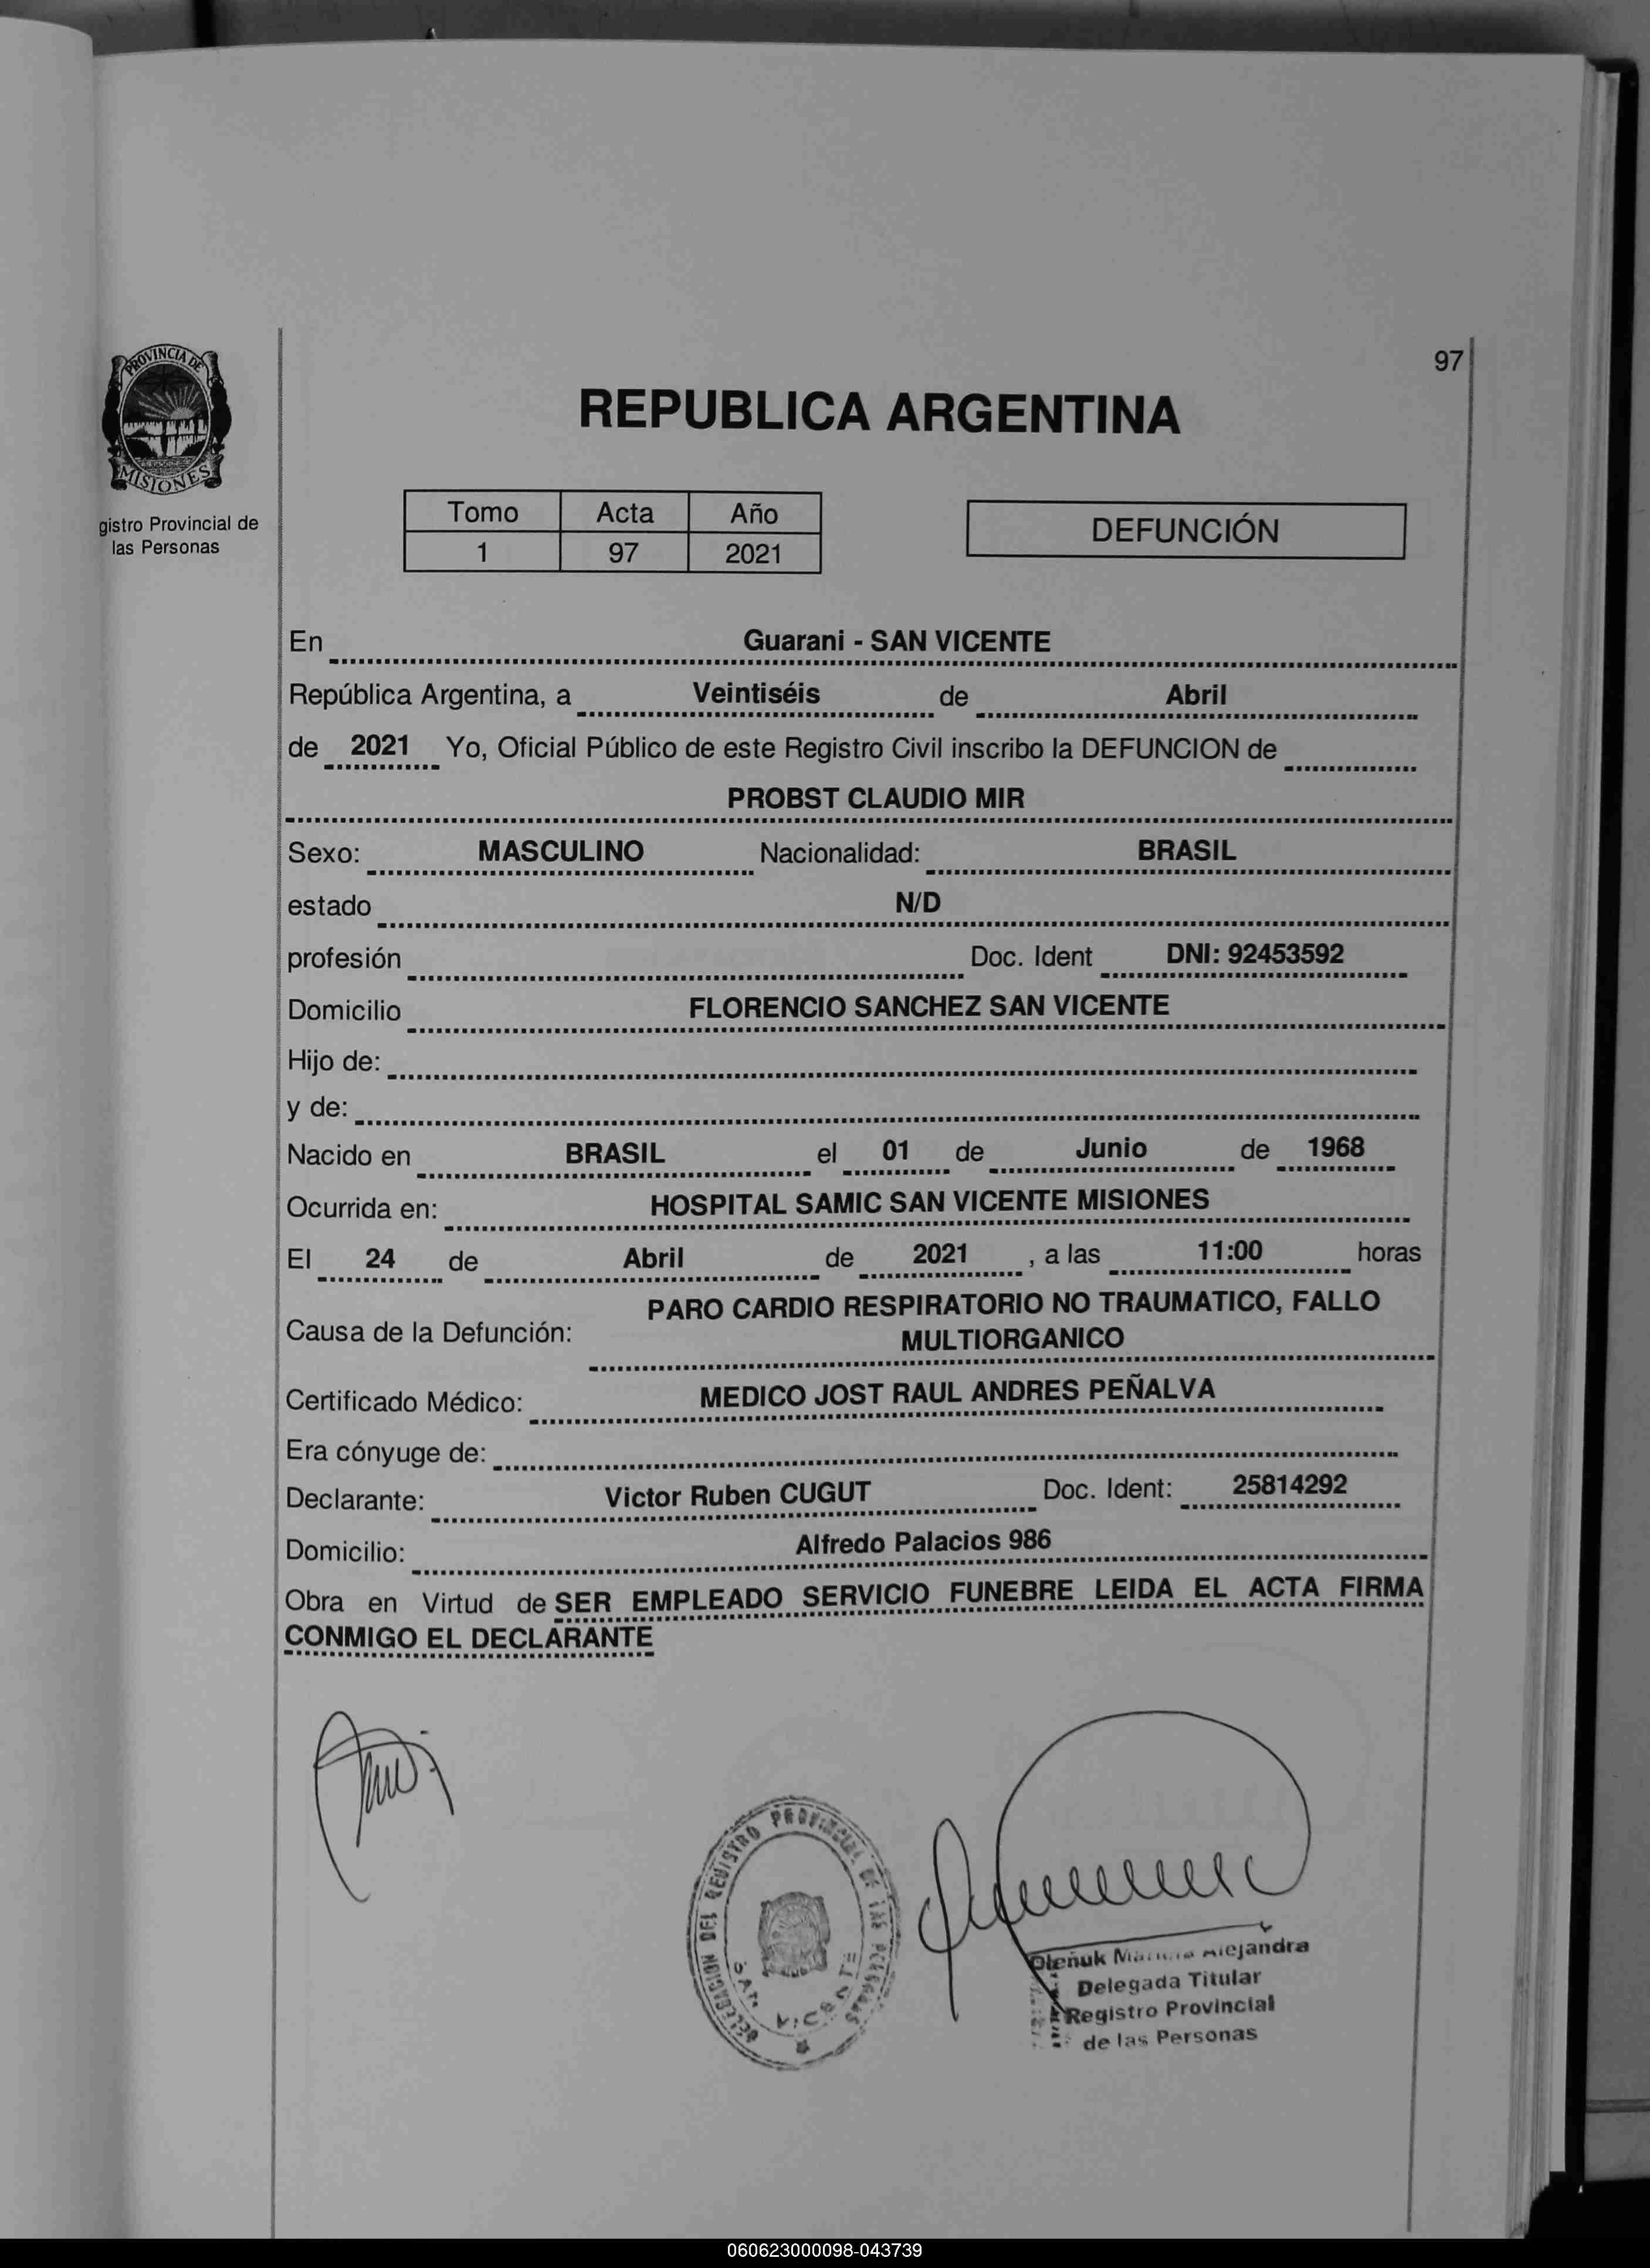 97
PROVINCIA DE
MISIONES
gistro Provincial de
las Personas
REPUBLICA ARGENTINA
Tomo Acta Año
1 97 2021
DEFUNCIÓN
En Guarani - SAN VICENTE
República Argentina, a Veintiséis de Abril
de 2021 Yo, Oficial Público de este Registro Civil inscribo la DEFUNCION de
PROBST CLAUDIO MIR
Sexo: MASCULINO Nacionalidad: BRASIL
estado N/D
profesión Doc. Ident DNI: 92453592
Domicilio FLORENCIO SANCHEZ SAN VICENTE
Hijo de:
y de:
Nacido en BRASIL el 01 de Junio de 1968
Ocurrida en: HOSPITAL SAMIC SAN VICENTE MISIONES
El 24 de Abril de 2021 , a las 11:00 horas
Causa de la Defunción: PARO CARDIO RESPIRATORIO NO TRAUMATICO, FALLO
MULTIORGANICO
Certificado Médico: MEDICO JOST RAUL ANDRES PEÑALVA
Era cónyuge de:
Declarante: Victor Ruben CUGUT Doc. Ident: 25814292
Domicilio: Alfredo Palacios 986
Obra en Virtud de SER EMPLEADO SERVICIO FUNEBRE LEIDA EL ACTA FIRMA
CONMIGO EL DECLARANTE
DELEGACION DEL REGISTRO PROVINCIAL DE LAS PERSONAS
SAN VICENTE
Oleñuk Alejandra
Delegada Titular
Registro Provincial
de las Personas
060623000098-043739